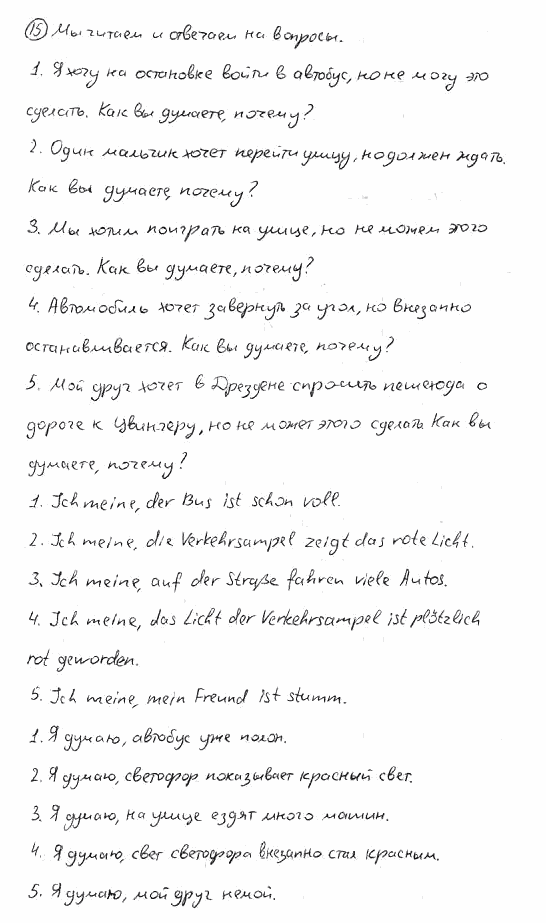 15 Мы читаем и отвечаем на вопросы.
1. Я хочу на остановке войти в автобус, но не могу это
сделать. Как вы думаете, почему?
2. Один мальчик хочет перейти улицу, но должен ждать.
Как вы думаете, почему?
3. Мы хотим поиграть на улице, но не можем этого
сделать. Как вы думаете, почему?
4. Автомобиль хочет завернуть за угол, но внезапно
останавливается. Как вы думаете, почему?
5. Мой друг хочет в Дрездене спросить пешехода о
дороге к Цвингеру, но не может этого сделать. Как вы
думаете, почему?
1. Ich meine, der Bus ist schon voll.
2. Ich meine, die Verkehrsampel zeigt das rote Licht.
3. Ich meine, auf der Straße fahren viele Autos.
4. Ich meine, das Licht der Verkehrsampel ist plötzlich
rot geworden.
5. Ich meine, mein Freund ist stumm.
1. Я думаю, автобус уже полон.
2. Я думаю, светофор показывает красный свет.
3. Я думаю, на улице ездят много машин.
4. Я думаю, свет светофора внезапно стал красным.
5. Я думаю, мой друг немой.